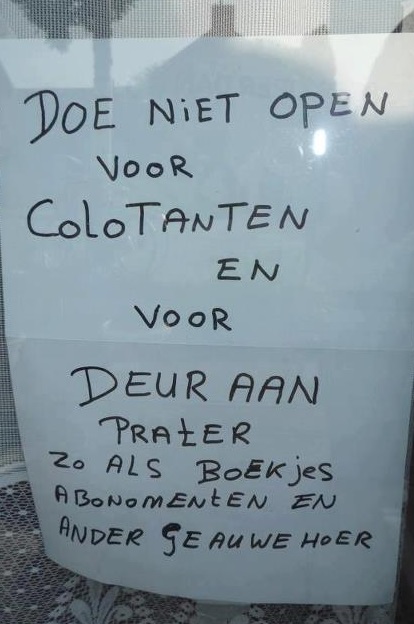 DOE NiET OPEN
VOOR
ColoTANTEN
EN
VOOR
DEUR AAN
PRAtER
Zo ALS BOEKjes
ABONOMENtEN EN
ANDER GEAUWEHOER